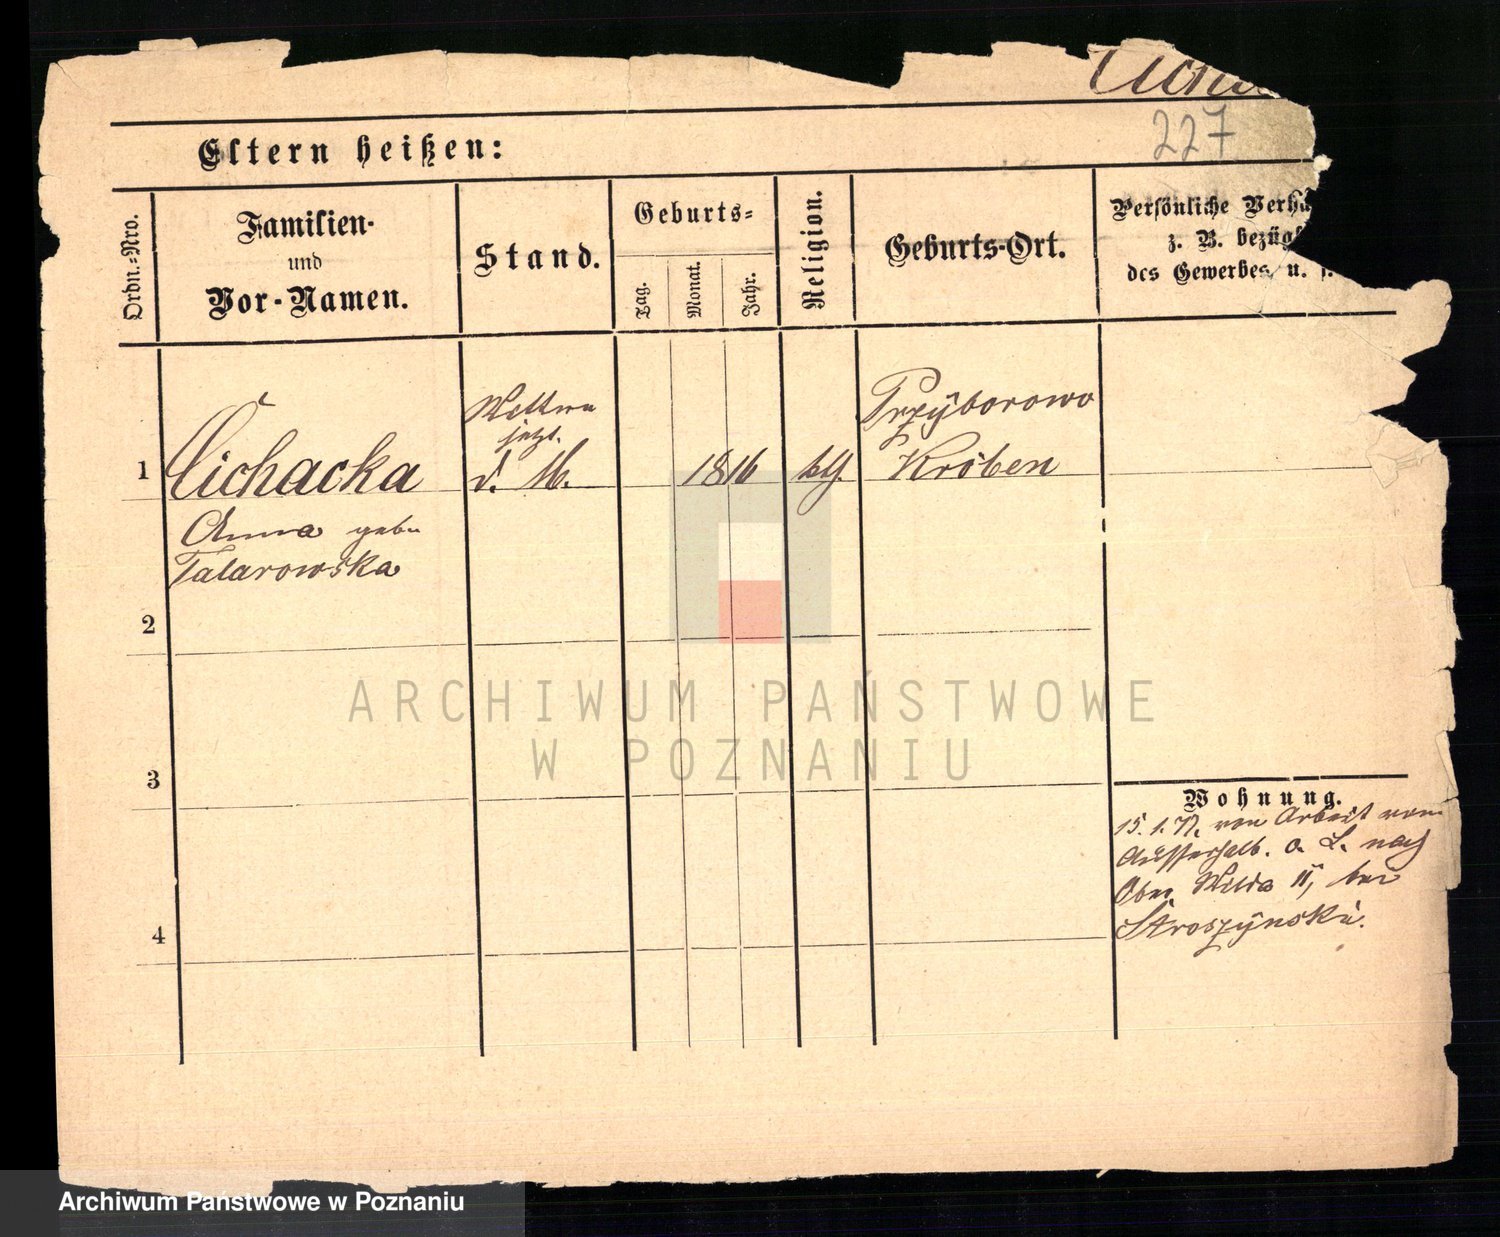 Cicha
227
Eltern heißen:
Ordn.-Nro.
Familien-
und
Vor-Namen.
Stand.
Geburts-
Tag.
Monat.
Jahr.
Religion.
Geburts-Ort.
Persönliche Verhä
z. B. bezügl
des Gewerbes u. s.
1
Cichacka
Anna geb.
Talarowska
Wittwe
jetzt
d. M.
1816
kth.
Przÿborowo
Kröben
2
3
4
Wohnung.
15. 1. 77. von Arbeit vom
Ausserhalb. a. L. nach
Ober Wilda 11, bei
Stroszÿnski.
ARCHIWUM PAŃSTWOWE
W POZNANIU
Archiwum Państwowe w Poznaniu